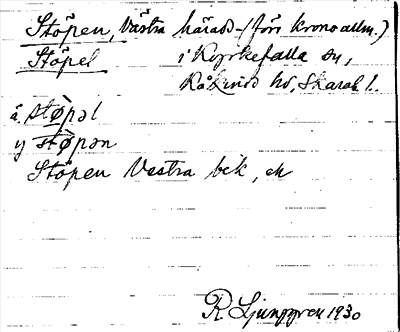 Stöpen, Västra härads- (förr kronoallm.)
Stöpel i Kyrkefalla sn,
Kåkinds hd, Skarab. l.
ä. stø̀pəl
y stø̀pən
Stöpen Vestra bek, ek
R. Ljunggren 1930